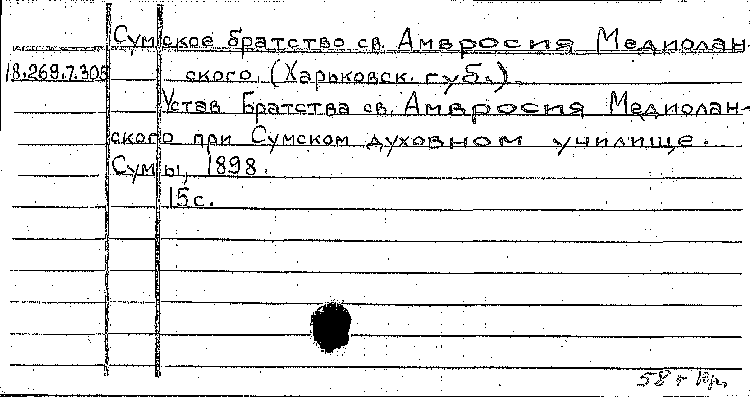 Сумское братство св. Амвросия Медиолан-
18.269.7.305 ского (Харьковск. губ.)
Устав Братства св. Амвросия Медиолан-
ского при Сумском духовном училище.
Сумы, 1898.
15 с.
58 г